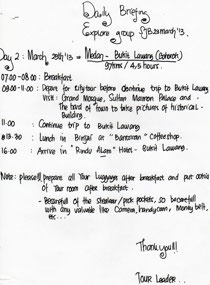 Daily Briefing
Explore group JB 28 march '13.
Day 2 : March 28th '13 = Medan - Bukit Lawang (Bohorok)
97kms / 4,5 hours.
07.00 - 08.00 : Breakfast.
09.00 - 11.00 : Depart for city tour before continue trip to Bukit Lawang
Visit : Grand Mosque, Sultan Maimoon Palace and -
The heart of town to take pictures of historical -
Building.
11.00 : Continue trip to Bukit Lawang
13.30 : Lunch in Binjai at "Bantenan" Coffeeshop.
16.00 : Arrive in "Rindu ALam" Hotel - Bukit Lawang.
Note : please prepare all Your Luggages after breakfast and put outside
of Your room after breakfast.
- Becareful of the stealear / pick pockets, so becareful
with any valuable like Camera, handycam, Money belt,
etc...
Thankyou!!!
TOUR Leader..